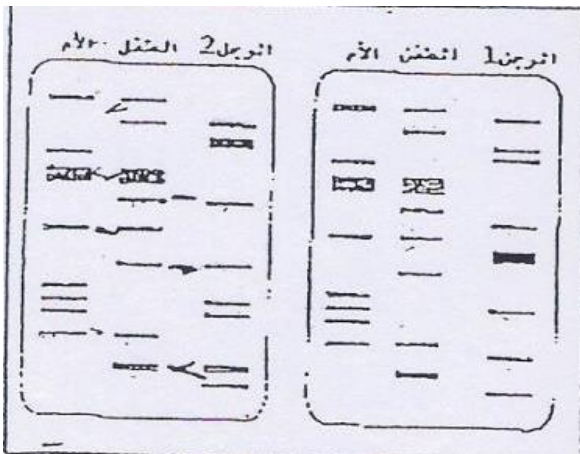 الرجل 2 الطفل الأم
الرجل 1 الطفل الأم